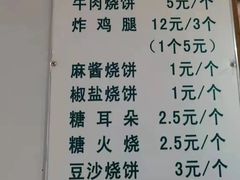 牛肉烧饼 5元/个
炸鸡腿 12元/3个
（1个5元）
麻酱烧饼 1元/个
椒盐烧饼 1元/个
糖耳朵 2.5元/个
糖火烧 2.5元/个
豆沙烧饼 3元/个